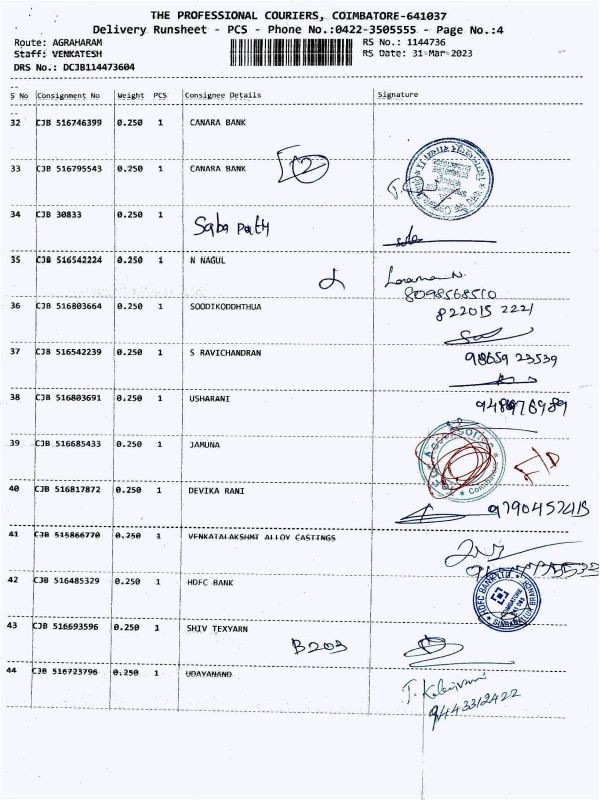 THE PROFESSIONAL COURIERS, COIMBATORE-641037
Delivery Runsheet - PCS - Phone No.:0422-3505555 - Page No.:4
Route: AGRAHARAM RS No.: 1144736
Staff: VENKATESH RS Date: 31-Mar-2023
DRS No.: DCJB114473604
S No Consignment No Weight PCS Consignee Details Signature
32 CJB 516746399 0.250 1 CANARA BANK
33 CJB 516795543 0.250 1 CANARA BANK
34 CJB 30833 0.250 1 Saba pathy
35 CJB 516542224 0.250 1 N NAGUL
8098568510
36 CJB 516803664 0.250 1 SOODIKODDHTHUA 822015 2221
37 CJB 516542239 0.250 1 S RAVICHANDRAN 98659 23539
38 CJB 516803691 0.250 1 USHARANI
39 CJB 516685433 0.250 1 JAMUNA
40 CJB 516817872 0.250 1 DEVIKA RANI 9790452415
41 CJB 515866770 0.250 1 VENKATALAKSHMI ALLOY CASTINGS
42 CJB 516485329 0.250 1 HDFC BANK HDFC BANK LTD.
43 CJB 516693596 0.250 1 SHIV TEXYARN B203
44 CJB 516723796 0.250 1 UDAYANAND
9443312422